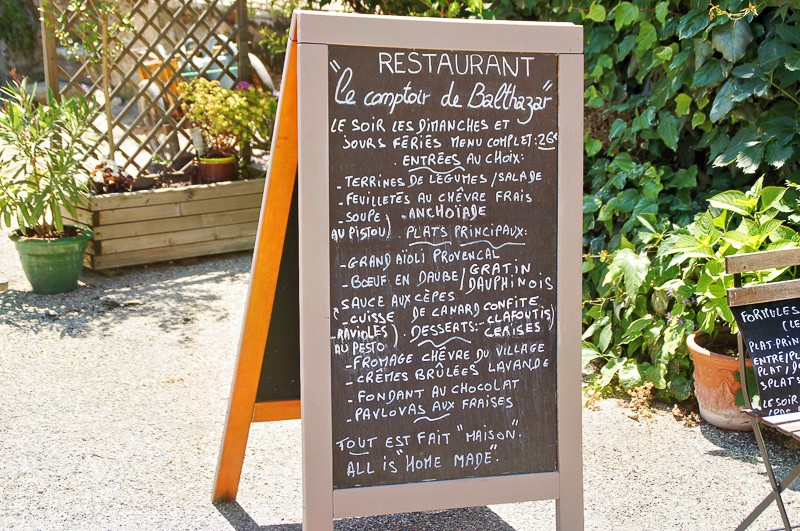 RESTAURANT
"Le comptoir de Balthazar"
LE SOIR LES DIMANCHES ET
JOURS FÉRIÉS MENU COMPLET: 26€
ENTRÉES AU CHOIX:
- TERRINES DE LÉGUMES / SALADE
- FEUILLETÉS AU CHÊVRE FRAIS
- SOUPE - ANCHOÏADE
AU PISTOU PLATS PRINCIPAUX:
- GRAND AÏOLI PROVENCAL
- BOEUF EN DAUBE / GRATIN DAUPHINOIS
SAUCE AUX CÈPES
- CUISSE DE CANARD CONFITE
- RAVIOLES AU PESTO
DESSERTS: - CLAFOUTIS CERISES
- FROMAGE CHÊVRE DU VILLAGE
- CRÊMES BRÛLÉES LAVANDE
- FONDANT AU CHOCOLAT
- PAVLOVAS AUX FRAISES
TOUT EST FAIT "MAISON".
ALL is "HOME MADE".
FORMULES
(LE
PLAT PRIN
ENTRÉE/PL
PLAT/D
3 PLATS
LE SOIR